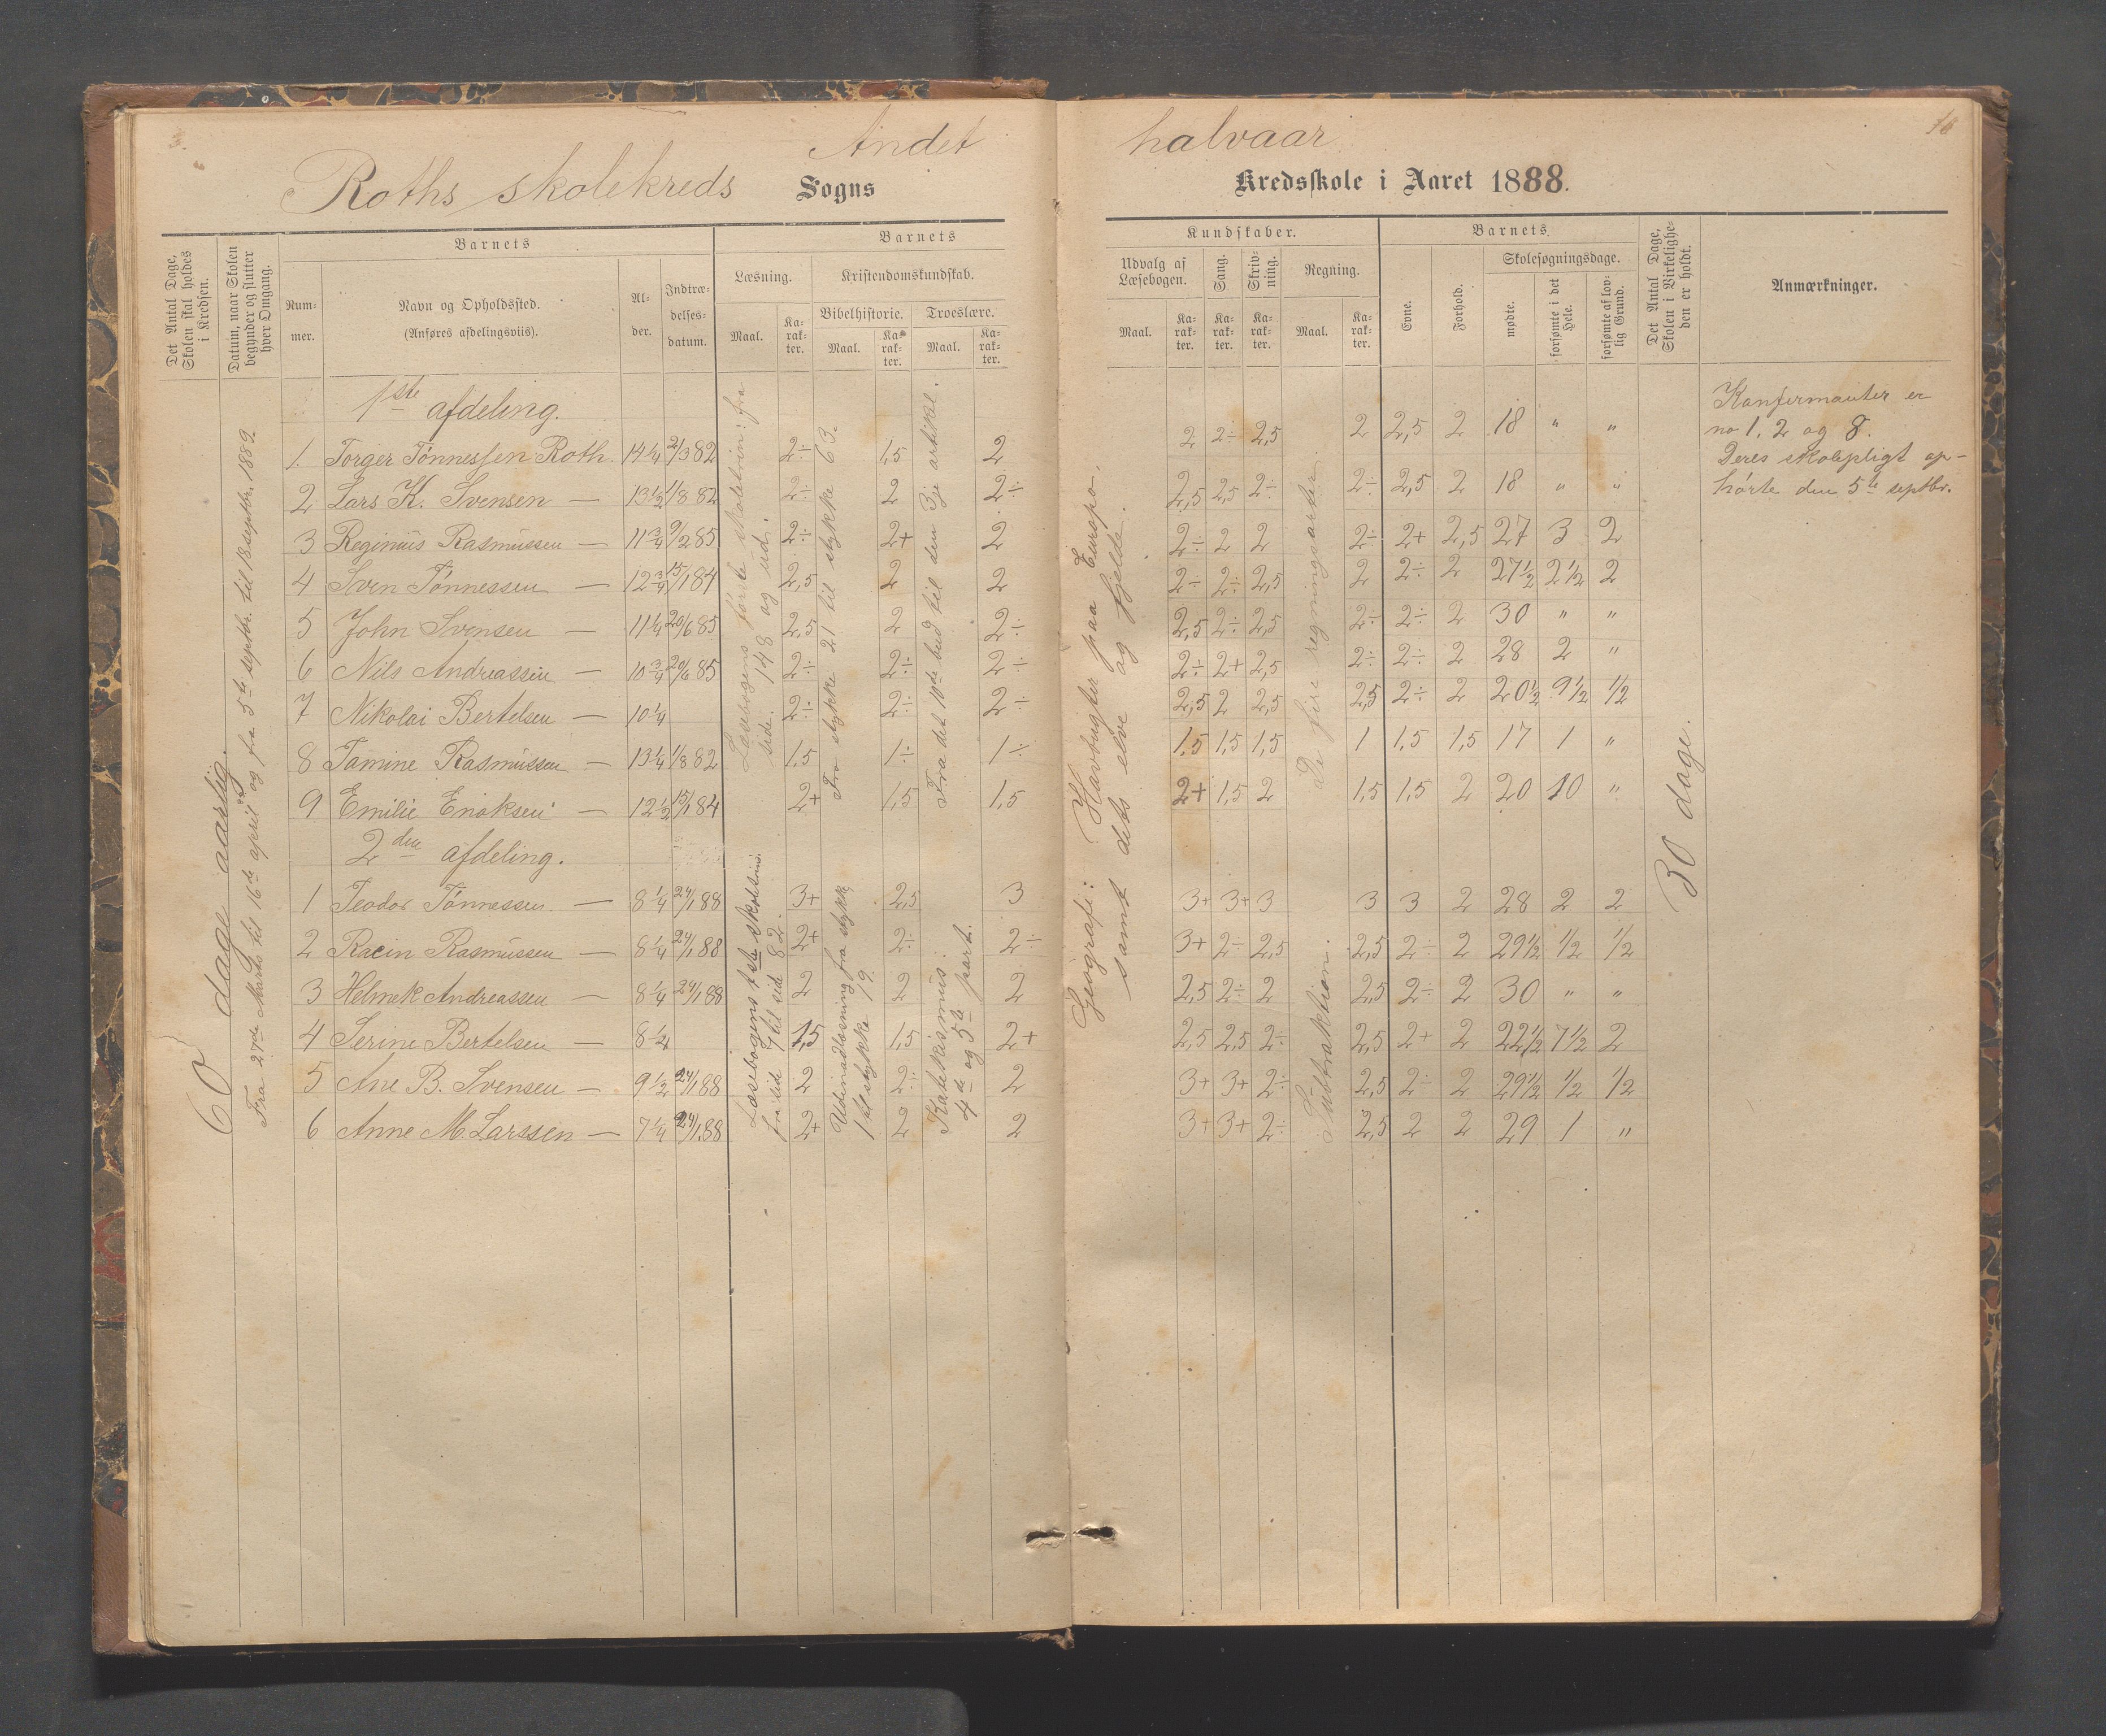 Andet halvaar
16
Roths skolekreds Sogns Kredsskole i Aaret 1888.
Det Antal Dage, Skolen skal holdes i Kredsen.
Datum, naar Skolen begynder og slutter hver Omgang.
Barnets
Nummer.
Navn og Opholdssted.
(Anføres afdelingsviis).
Alder.
Indtrædelsesdatum.
Barnets Kundskaber.
Læsning.
Maal.
Karakter.
Kristendomskundskab.
Bibelhistorie.
Maal.
Karakter.
Troeslære.
Maal.
Karakter.
Udvalg af Læsebogen.
Maal.
Karakter.
Sang.
Karakter.
Skrivning.
Karakter.
Regning.
Maal.
Karakter.
Barnets
Evne.
Forhold.
Skolesøgningsdage.
mødte.
forsømte i det Hele.
forsømte af lovlig Grund.
Det Antal Dage, Skolen i Virkeligheden er holdt.
Anmærkninger.
60 dage aarlig.
Fra 27de Marts til 16de april og fra 5te septbr. til 18 septbr. 1889.
1ste afdeling.
1. Torger Tønnessen Roth. 14 1/4 2/3 82 2÷ 1,5 2 2 2÷ 2,5 2 2,5 2 18 " "
2 Lars K. Svensen — 13 1/2 1/8 82 2÷ 2 2÷ 2,5 2,5 2÷ 2÷ 2,5 2 18 " "
3 Reginius Rasmussen — 11 3/4 9/2 85 2÷ 2+ 2 2÷ 2 2 2÷ 2+ 2,5 27 3 2
4 Sven Tønnessen — 12 3/4 15/1 84 2,5 2 2 2÷ 2÷ 2,5 2 2÷ 2 27 1/2 2 1/2 2
5 John Svensen — 11 1/4 20/6 85 2,5 2 2÷ 2,5 2÷ 2,5 2÷ 2÷ 2 30 " "
6 Nils Andreassen — 10 3/4 20/6 85 2÷ 2÷ 2÷ 2÷ 2+ 2,5 2÷ 2÷ 2 28 2 "
7 Nikolai Bertelsen — 10 1/4 2÷ 2÷ 2÷ 2,5 2 2,5 2,5 2÷ 2 20 1/2 9 1/2 1/2
8 Tamine Rasmussen — 13 1/4 1/8 82 1,5 1÷ 1÷ 1,5 1,5 1,5 1 1,5 1,5 17 1 "
9 Emilie Enoksen — 12 1/2 15/1 84 2+ 1,5 1,5 2+ 1,5 2 1,5 1,5 2 20 10 "
Læsebogens første skoletrin: fra side. 148 og ud.
Fra stykke 21 til stykke 63.
Fra det 10de bud til den 3je artikel.
Geografi: Havbugter paa Europa,
samt dets elve og fjelde.
De fire regningsarter.
2den afdeling.
1 Teodor Tønnessen — 8 1/4 24/1 88 3+ 2,5 3 3+ 3+ 3 3 3 2 28 2 2
2 Racin Rasmussen — 8 1/4 24/1 88 2+ 2÷ 2÷ 3+ 2÷ 2,5 2,5 2÷ 2 29 1/2 1/2 1/2
3 Helmek Andreassen — 8 1/4 24/1 88 2 2 2 2,5 2÷ 2 2,5 2÷ 2 30 " "
4 Serine Bertelsen — 8 1/4 1,5 1,5 2+ 2,5 2,5 2÷ 2,5 2+ 2 22 1/2 7 1/2 2
5 Ane B. Svensen — 9 1/2 24/1 88 2 2÷ 2 3+ 3+ 2÷ 2,5 2÷ 2 29 1/2 1/2 1/2
6 Anne M. Larssen — 7 1/4 24/1 88 2+ 2 2 3+ 3+ 2÷ 2,5 2 2 29 1 "
Læsebogens 1ste skoletrin:
fra side 7 til side 82.
Udenadlæsning fra stykk
1 til stykke 19.
Katekismus:
4de og 5te part.
Subtraktion.
30 dage.
Konfirmanter er
no 1, 2 og 8.
Deres skolepligt op-
hørte den 5te septbr.